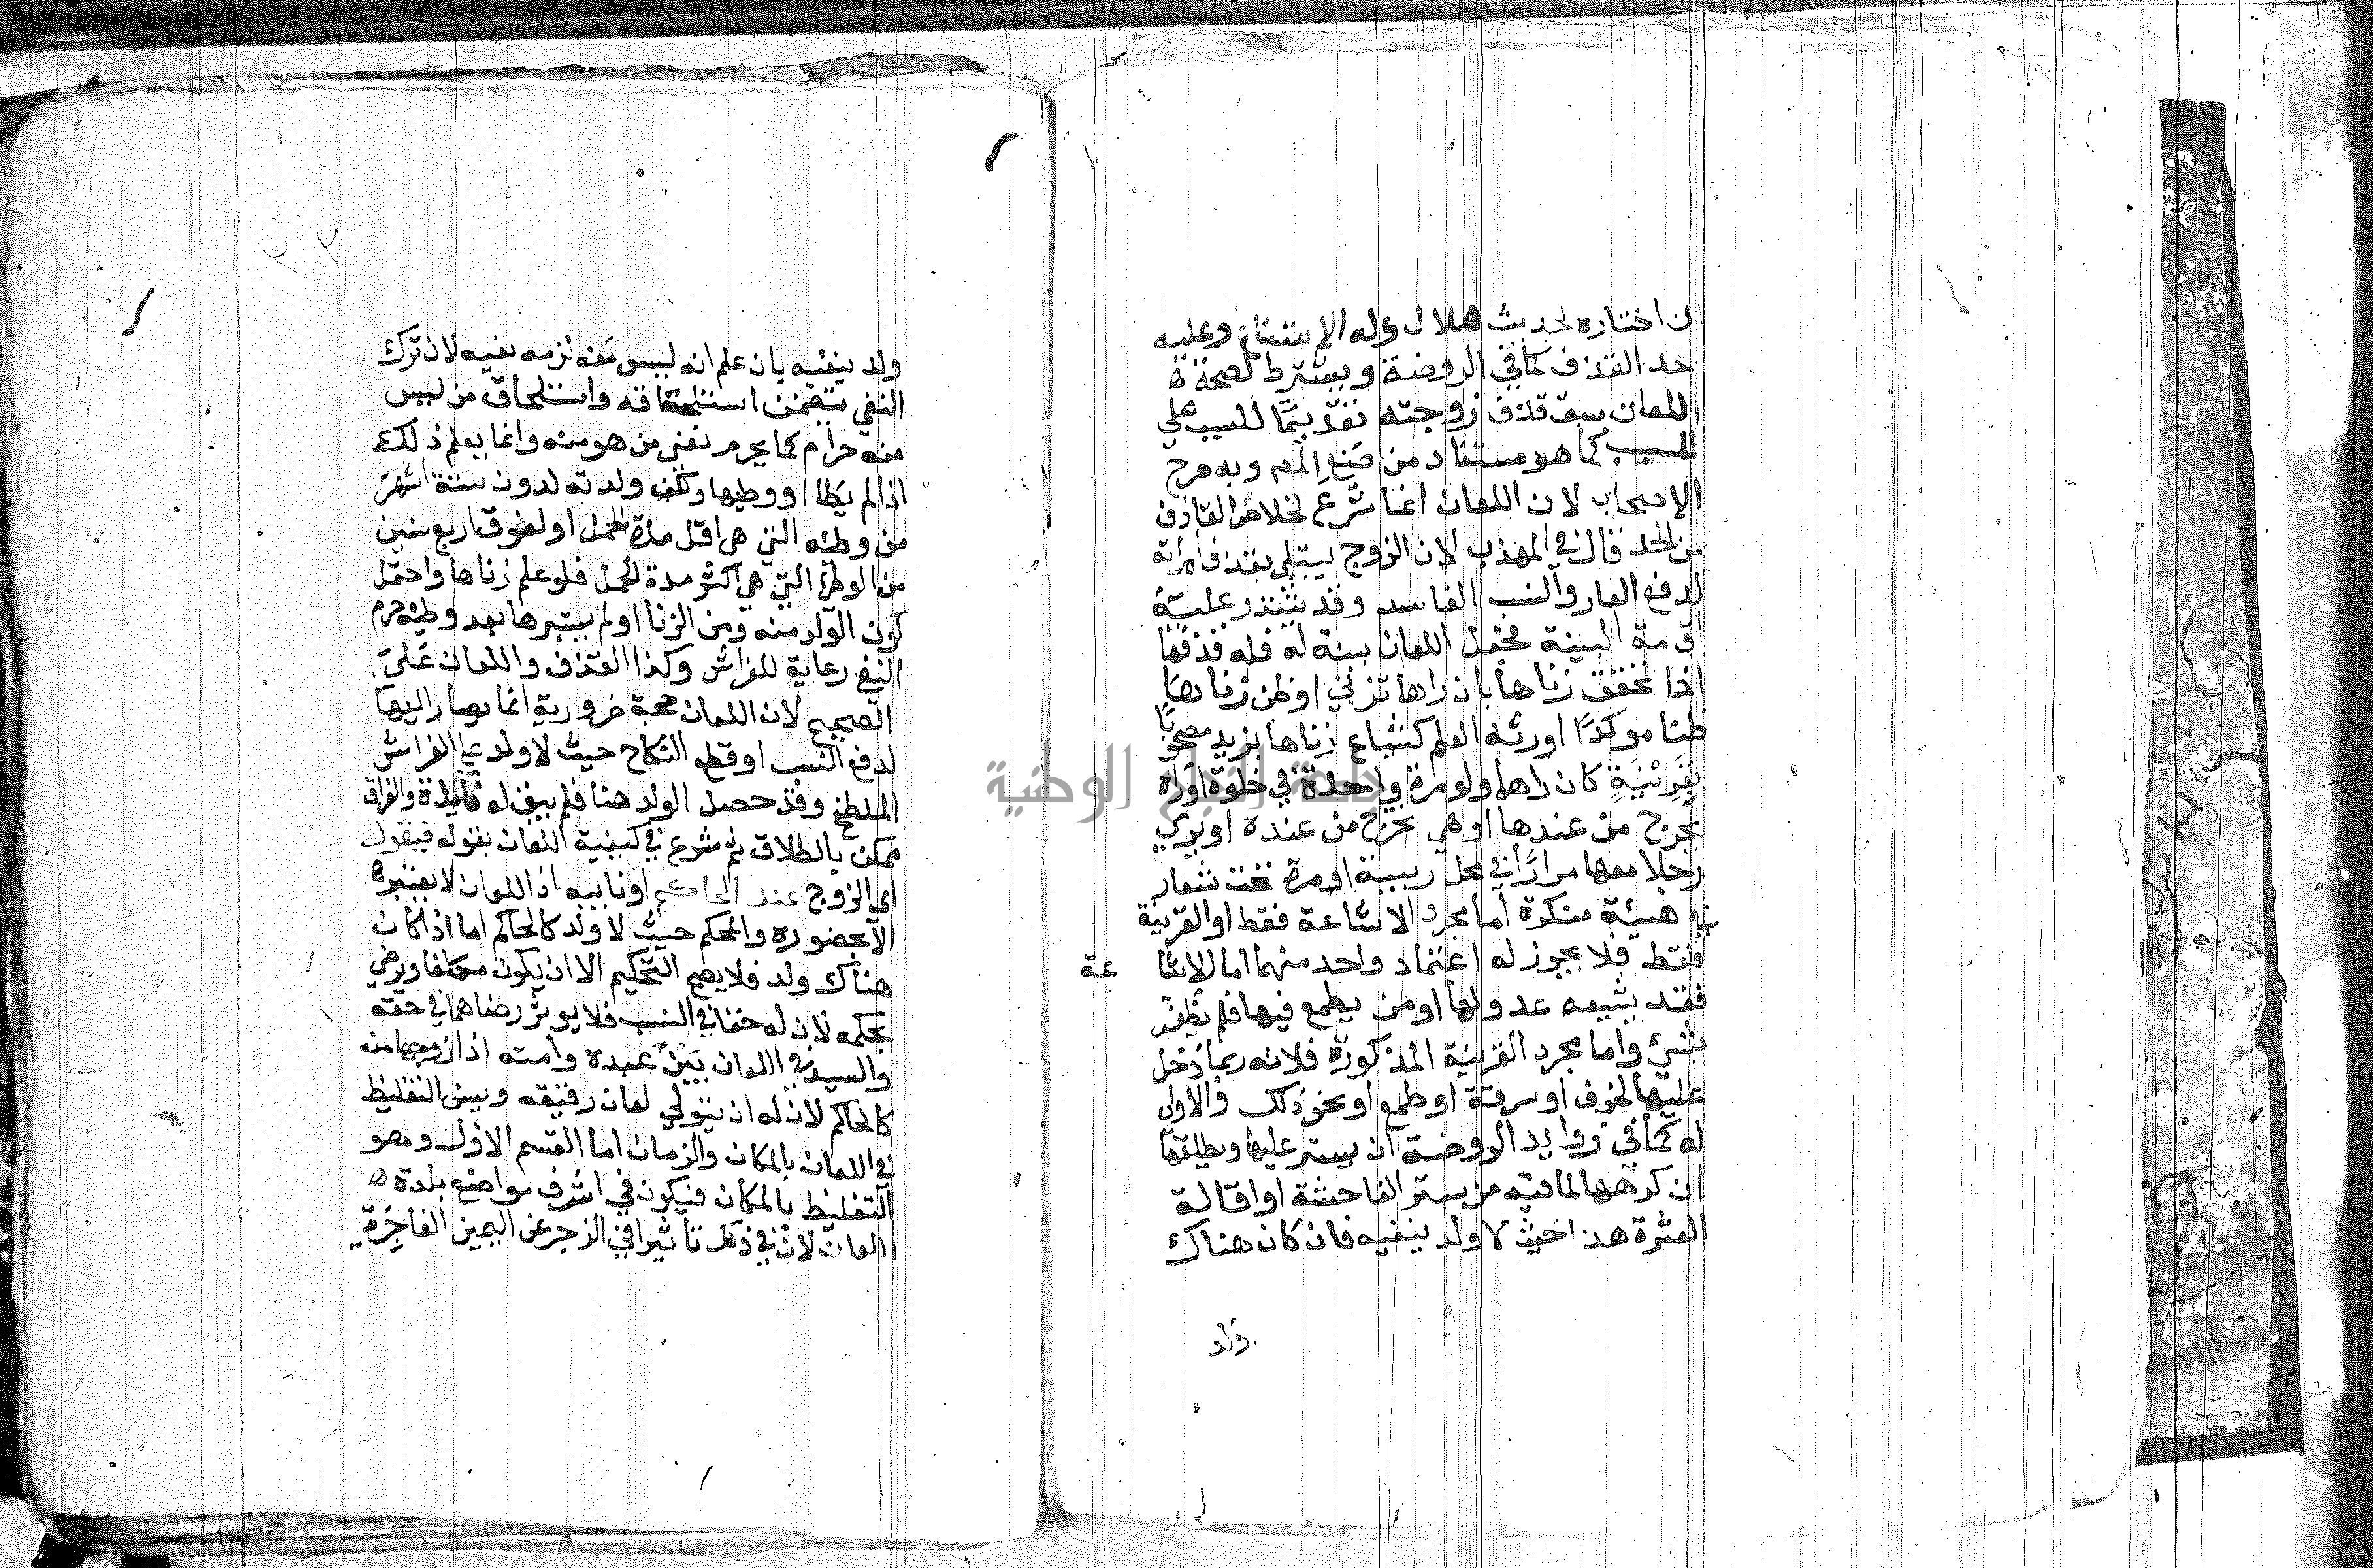 ان اختاره لحديث هلال وله الامتناع وعليه
حد القذف كما في الروضة ويشترط لصحة ه
اللعان سبق قذف زوجته تقديمًا للسبب علي
المسبب كما هو مستفاد من صنع المص وبه صرح
الاصحاب لان اللعان انما شرع لخلاص القاذف
من الحد قال في المهذب لان الزوج يبتلي بقذف امراته
لدفع العار والنسب الفاسد وقد يتعذر عليه
اقامة البينة فجعل اللعان بينة له فله قذفها
اذا تحقق زناها بان راها تزني او ظن زناها
ظنا موكدًا اورثه العلم كشياع زناها بزيد مصحوبًا
بقرينة كان راها ولو مرة واحدة في خلوة اوراه
يخرج من عندها او هي تخرج من عنده او يري
رجلا معها مرارًا في محل ريبة او مرة تحت شعار
في هيئة منكرة اما مجرد الاشاعة فقط او القرينة
فقط فلا يجوز له اعتماد واحد منهما اما الاشا عة
فقد يشيعه عدو لها او من يطمع فيها فلم يظفر
بشئ واما مجرد القرينة المذكورة فلانه ربما دخل
عليها لخوف او سرقة او طمع او نحو ذلك والاولي
له كما في زوايد الروضة ان يستر عليها ويطلقها
ان كرهها لما فيه من ستر الفاحشة او اقالة
العثرة هذا حيث لا ولد ينفيه فان كان هناك
ولد
ولد ينفيه بان علم انه ليس منه لزمه نفيه لان ترك
النفي يتضمن استلحاقه واستلحاق من ليس
منه حرام كما يحرم نفي من هو منه وانما يعلم ذلك
اذا لم يطا او وطيها ولكن ولدته لدون ستة اشهر
من وطئه التي هي اقل مدة الحمل او لفوق اربع سنين
من الوطئ التي هي اكثر مدة الحمل فلو علم زناها واحتمل
كون الولد منه ومن الزنا او لم يستبرها بعد وطئه حرم
النفي رعاية للفراش وكذا القذف واللعان علي
الصحيح لان اللعان حجة ضرورية انما يصار اليها
لدفع النسب او قطع النكاح حيث لا ولد علي الفراش
الملطخ وقد حصل الولد هنا فلم يبق له فايدة والفراق
ممكن بالطلاق ثم شرع في كيفية اللعان بقوله فيقول
اي الزوج عند الحاكم او نايبه اذ اللعان لا يعتبر ه
الا بحضوره والمحكم حيث لا ولد كالحاكم اما اذا كان
هناك ولد فلا يصح التحكيم الا ان يكون مكلفا ويرضي
بحكمه لان له حقا في النسب فلا يوثر رضاهما في حقه
والسيد في اللعان بين عبده وامته اذا زوجها منه
كالحاكم لان له ان يتولي لعان رقيقه ويسن التغليظ
في اللعان بالمكان والزمان اما القسم الاول وهو
التغليظ بالمكان فيكون في اشرف مواضع بلدة ه
اللعان لان في ذلك تاثيرا في الزجر عن اليمين الفاجرة